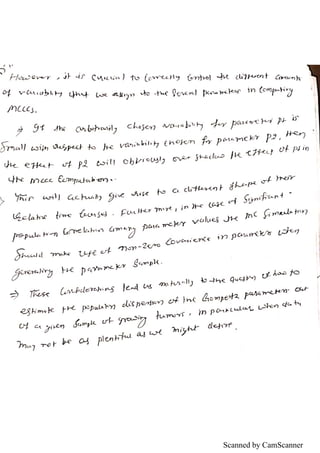 However, it is crucial to correctly control the different amounts
of variability that we assign to the several parameters in computing
MCCs.
⇒ If the arbitrarily chosen variability for parameter p1 is
small with respect to the variability chosen for parameter p2, then
the effect of p2 will obviously over shadow the effect of p1 in
the MCCC Computation.
This will actually give rise to a different shape of their
relative time courses. Further more, in the case of significant
population correlation among parameter values the MC simulation
should make use of non-zero covariance in parameter when
generating the parameter sample.
⇒ These considerations lead us naturally to the question of how to
estimate the population dispersion of the Gompertz parameters out
of a given sample of growing tumors, in particular when data
may not be as plentiful as we might desire.
Scanned by CamScanner